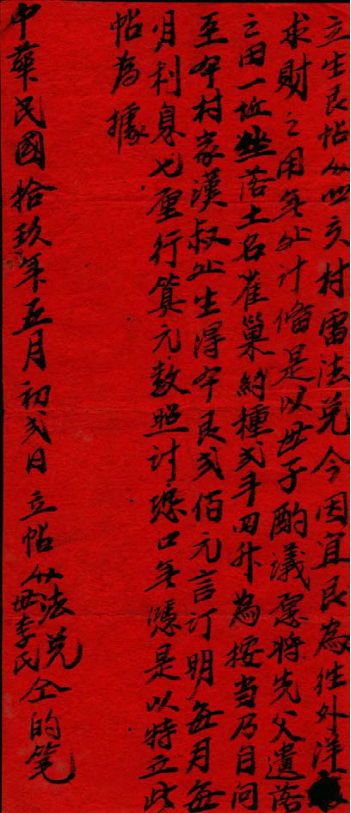 立生艮帖人㘴亥村雷法兑今因宜艮為徃外洋
求財之用無処计俻是以母子酌議愿將先父遺落
之田一坵坐落土名雀巢約種弍斗四升為按当乃自问
至本村家漢叔処生得本艮弍佰元言订明每月每
月利息七厘行算元数照计恐口無慿是以特立此
帖為據
中華民國拾玖年五月初弍日立帖人法兑母李氏仝的笔